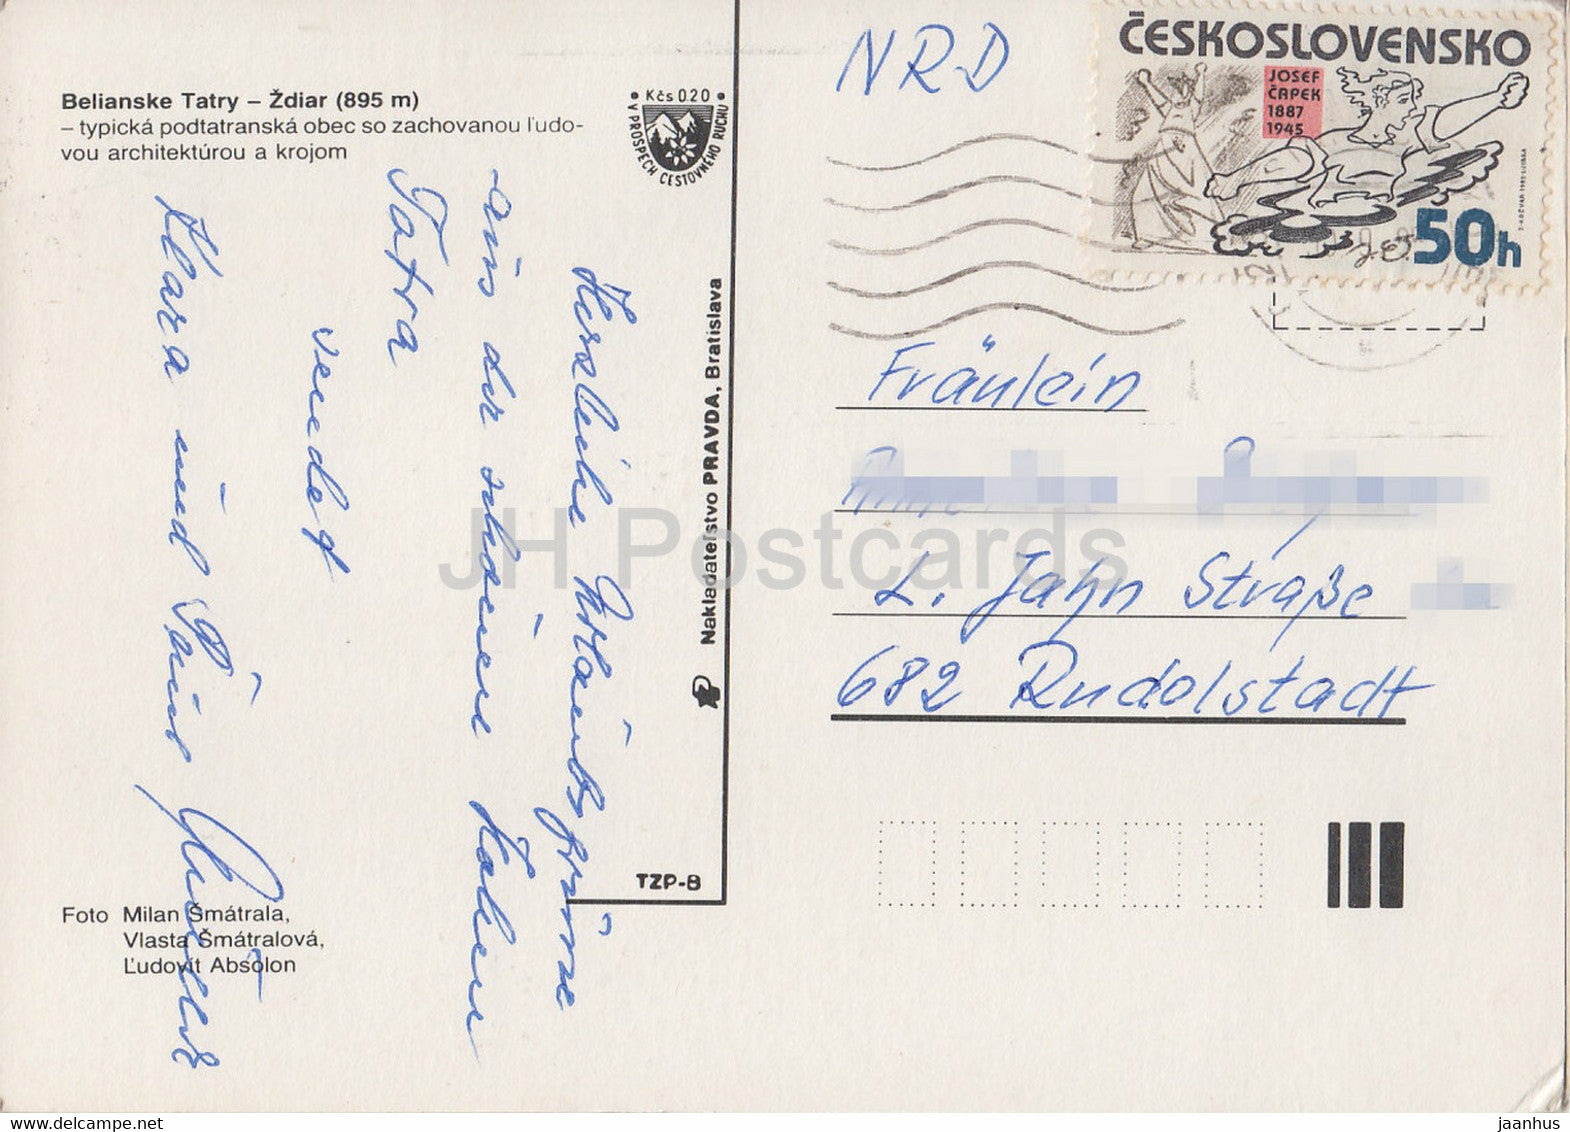 Belianske Tatry – Ždiar (895 m)
– typická podtatranská obec so zachovanou ľudo-
vou architektúrou a krojom
• Kčs 0.20 •
V PROSPECH CESTOVNÉHO RUCHU
Herzliche Urlaubsgrüße
aus der schönen Hohen
Tatra
sendet
Klara und
Foto Milan Šmátrala,
Vlasta Šmátralová,
Ľudovít Absolon
Nakladateľstvo PRAVDA, Bratislava
TZP-8
NRD
ČESKOSLOVENSKO
JOSEF
ČAPEK
1887
1945
50h
Fräulein
L. Jahn Straße
682 Rudolstadt
JH Postcards
jaanhus